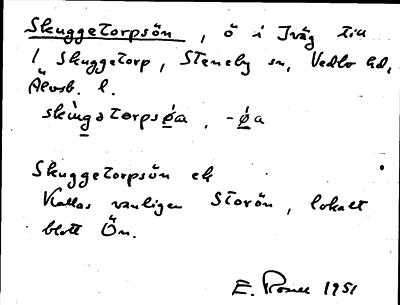 Skuggetorpsön, ö i Iväg till
1 Skuggetorp, Steneby sn, Vedbo hd,
Älvsb. l.
skùngatorpsø̀a, -ǿa
Skuggetorpsön el
Kallas vanligen Storön, lokalt
blott Ön.
E. 1951